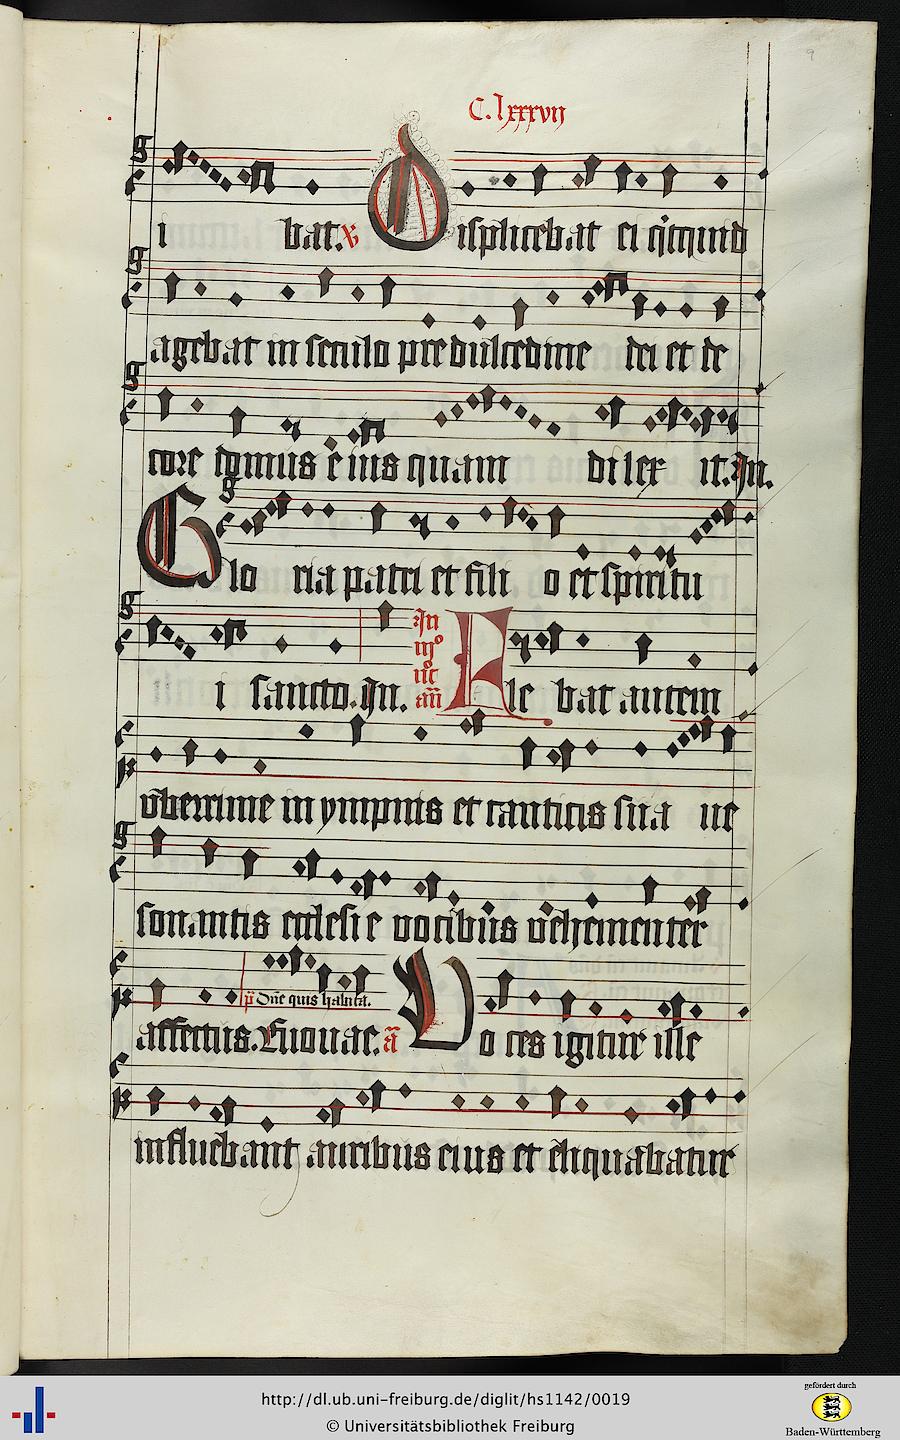 C.lxxxvij
9
i bat. v Displicebat ei q̇icquid
agebat in seculo pre dulcedine dei et de
core domus eius quam dilex it. In.
Glo ria patri et fili o et spiritu
i sancto. In. In iijo noct an Fle bat autem
vberrime in ympnis et canticis sua ue
sonantis ecclesie vocibus vehementer
affectus. Euouae. p̄s Dn̄e quis habita. an̄ Vo ces igitur ille
influebant auribus eius et eliquabatur
http://dl.ub.uni-freiburg.de/diglit/hs1142/0019
© Universitätsbibliothek Freiburg
gefördert durch
Baden-Württemberg